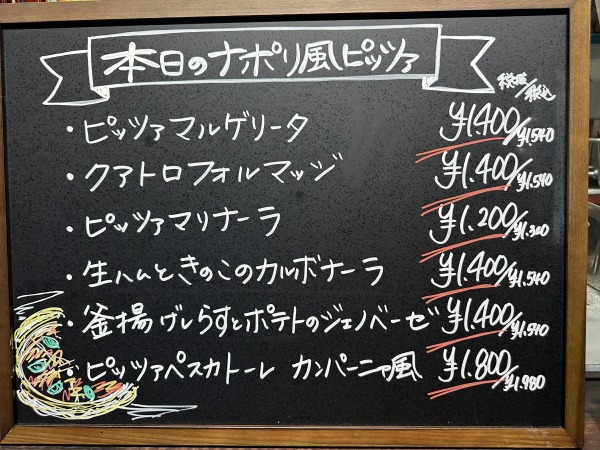 本日のナポリ風ピッツァ
税抜/税込
・ピッツァマルゲリータ ¥1.400/¥1.540
・クアトロフォルマッジ ¥1.400/¥1.540
・ピッツァマリナーラ ¥1.200/¥1.320
・生ハムときのこのカルボナーラ ¥1.400/¥1.540
・釜揚げしらすとポテトのジェノベーゼ ¥1.400/¥1.540
・ピッツァペスカトーレ カンパーニャ風 ¥1.800/¥1.980